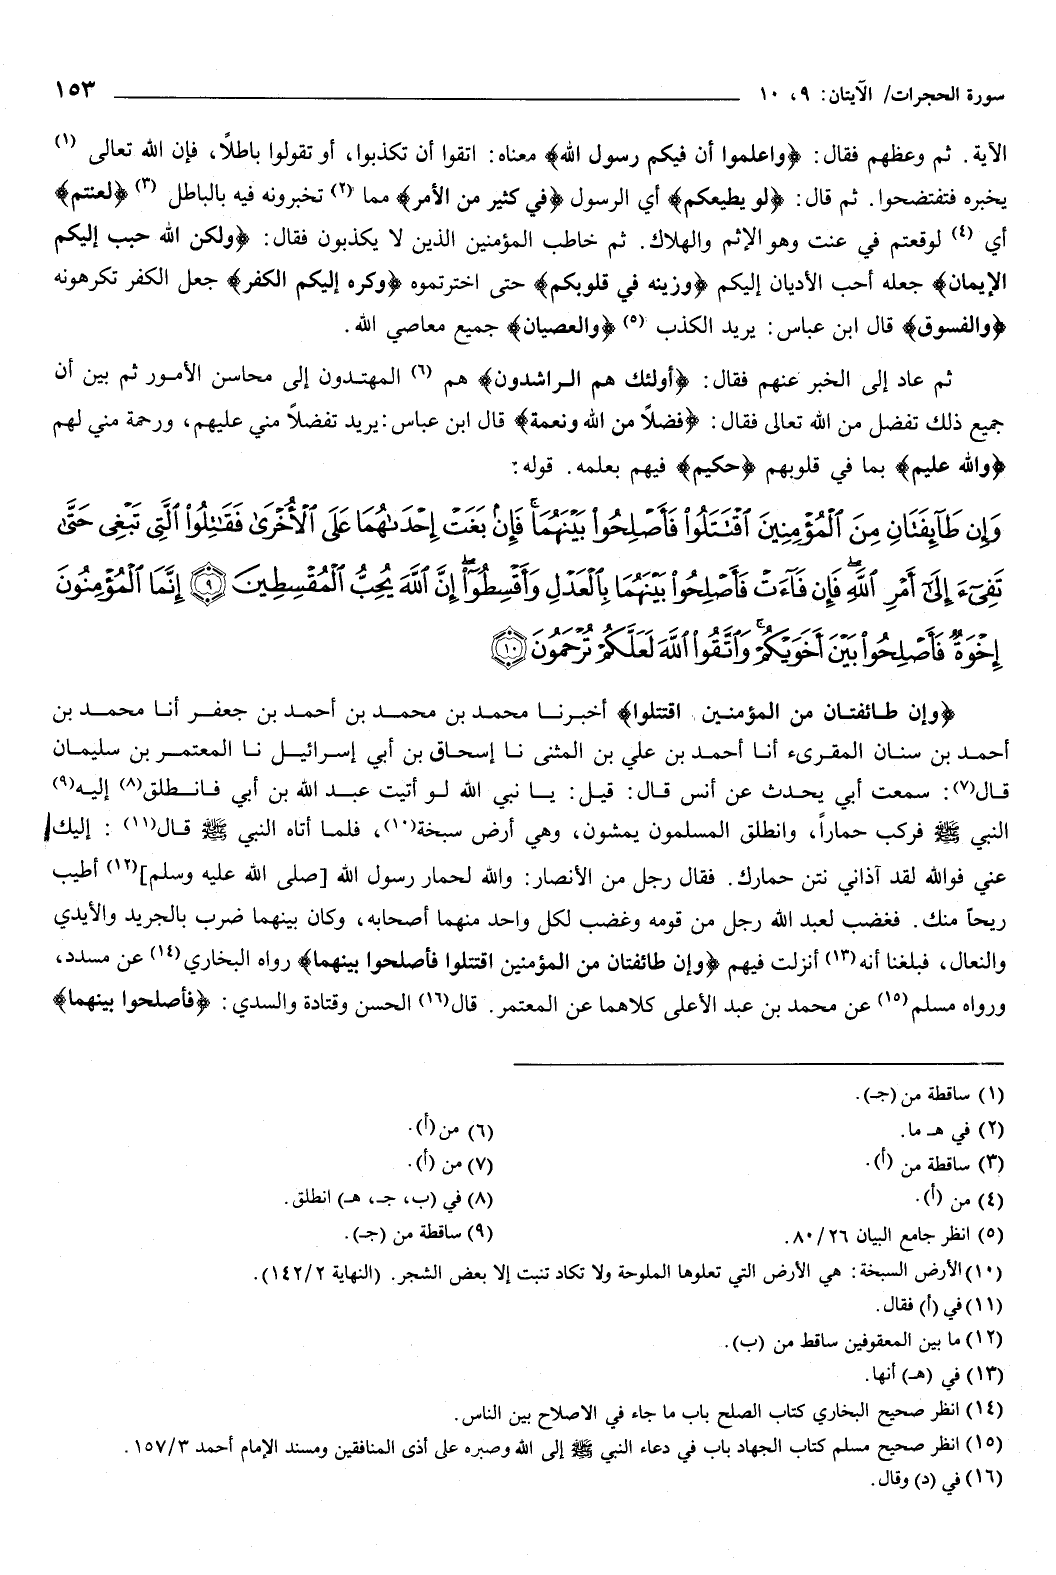 سورة الحجرات/ الآيتان: ٩، ١٠ ١٥٣
الآية. ثم وعظهم فقال: ﴿واعلموا أن فيكم رسول الله﴾ معناه: اتقوا أن تكذبوا، أو تقولوا باطلاً، فإن الله تعالى (١)
يخبره فتفتضحوا. ثم قال: ﴿لو يطيعكم﴾ أي الرسول ﴿في كثير من الأمر﴾ مما (٢) تخبرونه فيه بالباطل (٣) ﴿لعنتم﴾
أي (٤) لوقعتم في عنت وهو الإثم والهلاك. ثم خاطب المؤمنين الذين لا يكذبون فقال: ﴿ولكن الله حبب إليكم
الإيمان﴾ جعله أحب الأديان إليكم ﴿وزينه في قلوبكم﴾ حتى اخترتموه ﴿وكره إليكم الكفر﴾ جعل الكفر تكرهونه
﴿والفسوق﴾ قال ابن عباس: يريد الكذب (٥) ﴿والعصيان﴾ جميع معاصي الله.
ثم عاد إلى الخبر عنهم فقال: ﴿أولئك هم الراشدون﴾ هم (٦) المهتدون إلى محاسن الأمور ثم بين أن
جميع ذلك تفضل من الله تعالى فقال: ﴿فضلاً من الله ونعمة﴾ قال ابن عباس: يريد تفضلاً مني عليهم، ورحمة مني لهم
﴿والله عليم﴾ بما في قلوبهم ﴿حكيم﴾ فيهم بعلمه. قوله:
وَإِن طَآئِفَتَانِ مِنَ ٱلْمُؤْمِنِينَ ٱقْتَتَلُوا۟ فَأَصْلِحُوا۟ بَيْنَهُمَا ۖ فَإِنۢ بَغَتْ إِحْدَىٰهُمَا عَلَى ٱلْأُخْرَىٰ فَقَٰتِلُوا۟ ٱلَّتِى تَبْغِى حَتَّىٰ
تَفِىٓءَ إِلَىٰٓ أَمْرِ ٱللَّهِ ۚ فَإِن فَآءَتْ فَأَصْلِحُوا۟ بَيْنَهُمَا بِٱلْعَدْلِ وَأَقْسِطُوٓا۟ ۖ إِنَّ ٱللَّهَ يُحِبُّ ٱلْمُقْسِطِينَ ٩ إِنَّمَا ٱلْمُؤْمِنُونَ
إِخْوَةٌ فَأَصْلِحُوا۟ بَيْنَ أَخَوَيْكُمْ ۚ وَٱتَّقُوا۟ ٱللَّهَ لَعَلَّكُمْ تُرْحَمُونَ ١٠
﴿وإن طائفتان من المؤمنين اقتتلوا﴾ أخبرنا محمد بن محمد بن أحمد بن جعفر أنا محمد بن
أحمد بن سنان المقرىء أنا أحمد بن علي بن المثنى نا إسحاق بن أبي إسرائيل نا المعتمر بن سليمان
قال(٧): سمعت أبي يحدث عن أنس قال: قيل: يا نبي الله لو أتيت عبد الله بن أبي فانطلق(٨) إليه(٩)
النبي ﷺ فركب حماراً، وانطلق المسلمون يمشون، وهي أرض سبخة(١٠)، فلما أتاه النبي ﷺ قال(١١): إليك
عني فوالله لقد آذاني نتن حمارك. فقال رجل من الأنصار: والله لحمار رسول الله [صلى الله عليه وسلم](١٢) أطيب
ريحاً منك. فغضب لعبد الله رجل من قومه وغضب لكل واحد منهما أصحابه، وكان بينهما ضرب بالجريد والأيدي
والنعال، فبلغنا أنه(١٣) أنزلت فيهم ﴿وإن طائفتان من المؤمنين اقتتلوا فأصلحوا بينهما﴾ رواه البخاري(١٤) عن مسدد،
ورواه مسلم(١٥) عن محمد بن عبد الأعلى كلاهما عن المعتمر. قال(١٦) الحسن وقتادة والسدي: ﴿فأصلحوا بينهما﴾
(١) ساقطة من (جـ).
(٢) في هـ ما.
(٣) ساقطة من (أ).
(٤) من (أ).
(٥) انظر جامع البيان ٢٦/ ٨٠.
(٦) من (أ).
(٧) من (أ).
(٨) في (ب، جـ، هـ) انطلق.
(٩) ساقطة من (جـ).
(١٠) الأرض السبخة: هي الأرض التي تعلوها الملوحة ولا تكاد تنبت إلا بعض الشجر. (النهاية ٢/ ١٤٢).
(١١) في (أ) فقال.
(١٢) ما بين المعقوفين ساقط من (ب).
(١٣) في (هـ) أنها.
(١٤) انظر صحيح البخاري كتاب الصلح باب ما جاء في الاصلاح بين الناس.
(١٥) انظر صحيح مسلم كتاب الجهاد باب في دعاء النبي ﷺ إلى الله وصبره على أذى المنافقين ومسند الإمام أحمد ٣/ ١٥٧.
(١٦) في (د) وقال.